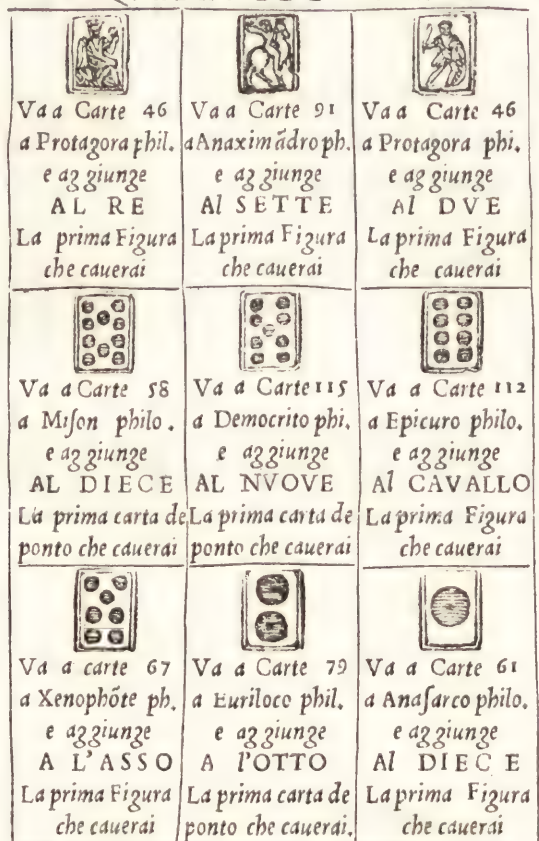 Va a Carte 46
a Protagora phil.
e ag giunge
AL RE
La prima Figura
che cauerai
Va a Carte 91
a Anaximãdro ph.
e ag giunge
Al SETTE
La prima Figura
che cauerai
Va a Carte 46
a Protagora phi.
e ag giunge
Al DVE
La prima Figura
che cauerai
Va a Carte 58
a Mison philo.
e ag giunge
AL DIECE
La prima carta de
ponto che cauerai
Va a Carte 115
a Democrito phi.
e ag giunge
AL NVOVE
La prima carta de
ponto che cauerai
Va a Carte 112
a Epicuro philo.
e ag giunge
Al CAVALLO
La prima Figura
che cauerai
Va a carte 67
a Xenophõte ph.
e ag giunge
A L'ASSO
La prima Figura
che cauerai
Va a Carte 79
a Euriloco phil.
e ag giunge
A l'OTTO
La prima carta de
ponto che cauerai.
Va a Carte 61
a Anaſarco philo.
e ag giunge
Al DIECE
La prima Figura
che cauerai